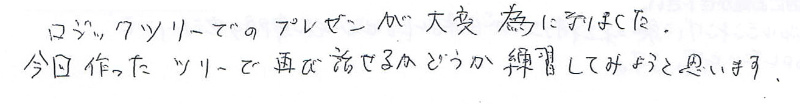 ロジックツリーでのプレゼンが大変為になりました.
今回作ったツリーで再び話せるかどうか練習してみようと思います.